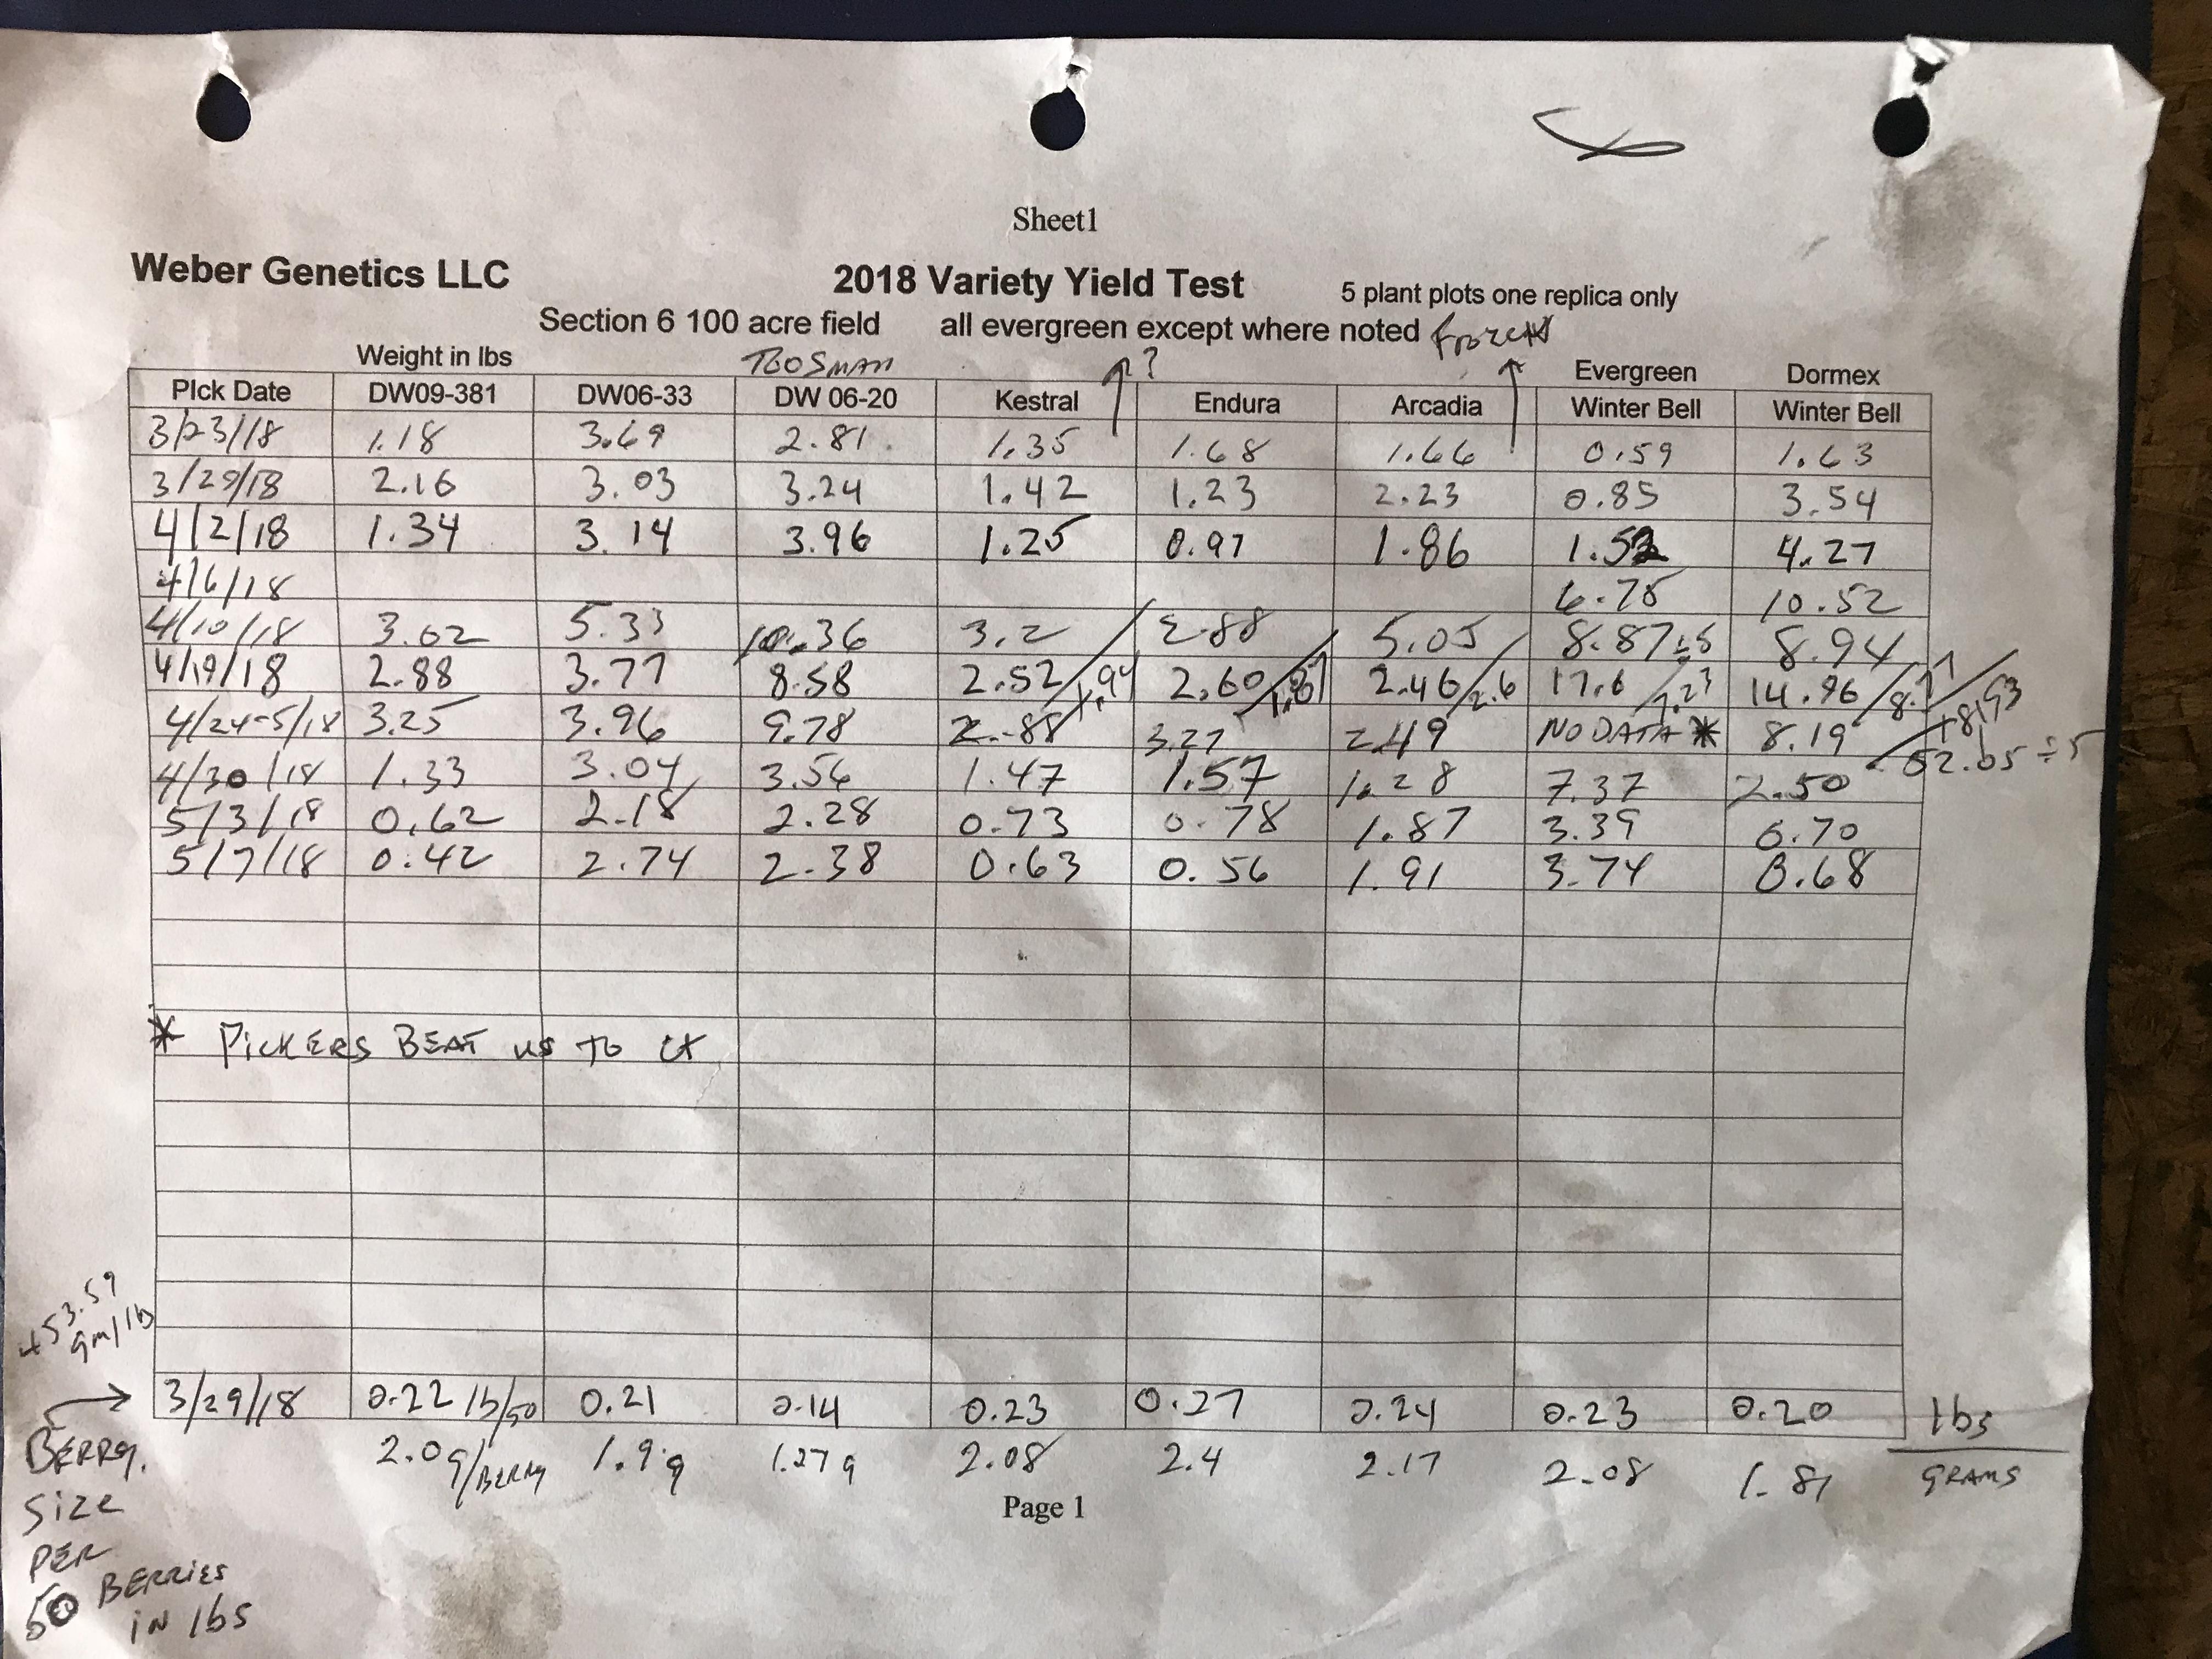 Sheet1
Weber Genetics LLC 2018 Variety Yield Test 5 plant plots one replica only
Section 6 100 acre field all evergreen except where noted
Weight in lbs ?  Evergreen Dormex
PIck Date DW09-381 DW06-33 DW 06-20 Kestral Endura Arcadia Winter Bell Winter Bell
3/23/18 1.18 3.69 2.81 1.35 1.68 1.66 0.59 1.63
3/29/18 2.16 3.03 3.24 1.42 1.23 2.23 0.85 3.54
4/2/18 1.34 3.14 3.96 1.25 0.97 1.86 1.52 4.27
4/6/18 6.75 10.52
4/10/18 3.62 5.33 10.36 3.2 2.88 5.05 8.87÷5 8.94
4/19/18 2.88 3.77 8.58 2.52 1.94 2.60 1.87 2.46 2.6 17.6 7.23 14.96
4/24-5/18 3.25 3.96 9.78 2.88 3.27 2.49 NO DATA * 8.19
4/30/18 1.33 3.04 3.56 1.47 1.57 1.28 7.37 2.50 52.65 ÷ 5
5/3/18 0.62 2.18 2.28 0.73 0.78 1.87 3.39 0.70
5/7/18 0.42 2.74 2.38 0.63 0.56 1.91 3.74 0.68
* PICKERS BEAT us TO it
453.59
gm/lb
3/29/18 0.22 lb/50 0.21 0.14 0.23 0.27 0.24 0.23 0.20 lbs
2.0 g/BERRY 1.9 g 1.27 g 2.08 2.4 2.17 2.08 1.81 GRAMS
BERRY
SIZE
PER
50 BERRIES
IN lbs
Page 1